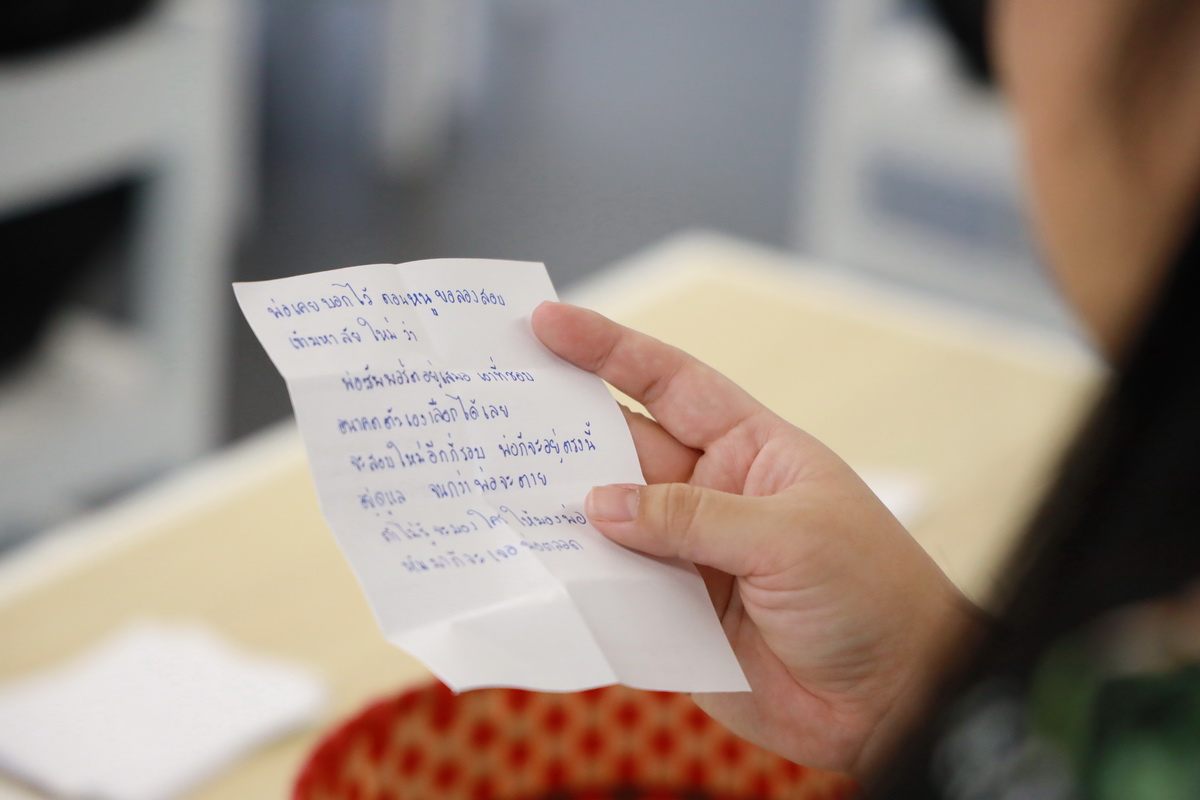 พ่อเคยบอกไว้ ตอนหนูขอลองสอบ
เข้ามหาลัยใหม่ ว่า
พ่อซัพพอร์ตอยู่เสมอ เอาที่ชอบ
อนาคตตัวเองเลือกได้เลย
จะสอบใหม่อีกกี่รอบ พ่อก็จะอยู่ตรงนี้
อยู่ดูแล จนกว่าพ่อจะตาย
ถ้าไม่รู้จะมองใครให้มองพ่อ
หันมาก็จะเจอพ่อตลอด